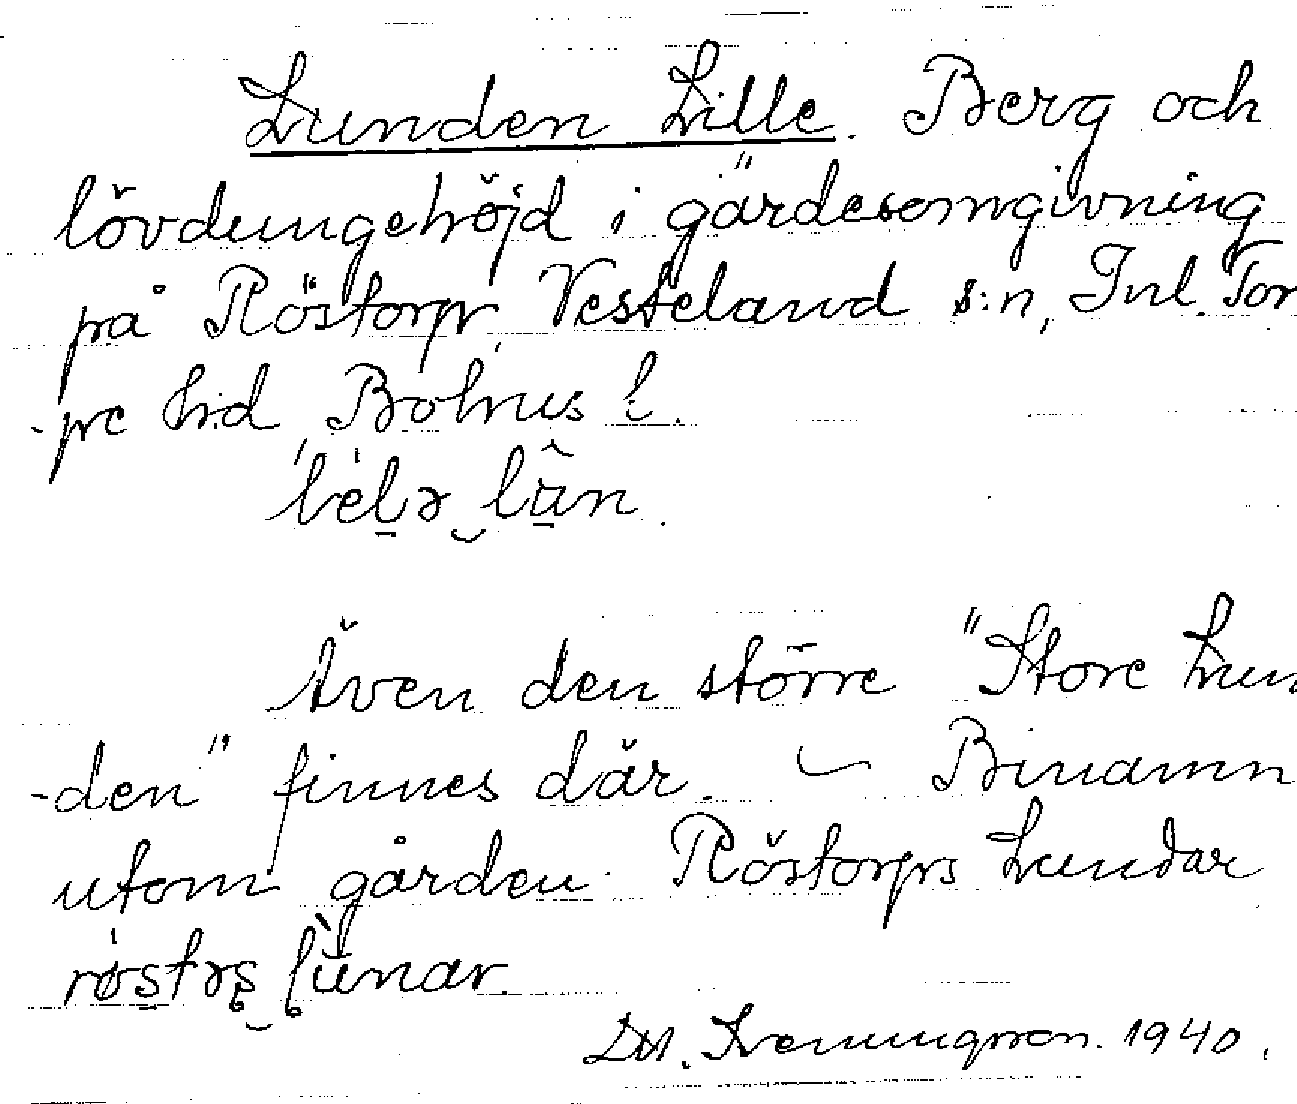 Lunden Lille. Berg och
lövdungehöjd i gärdesomgivning
på Röstorp, Vesteland s:n, Inl. Tor
-pe h:d, Bohus l.
lelə lun.
Även den större "Store Lun-
-den" finnes där. – Binamn
utom gården: Röstorps Lundar
røstəs lunar.
1940.